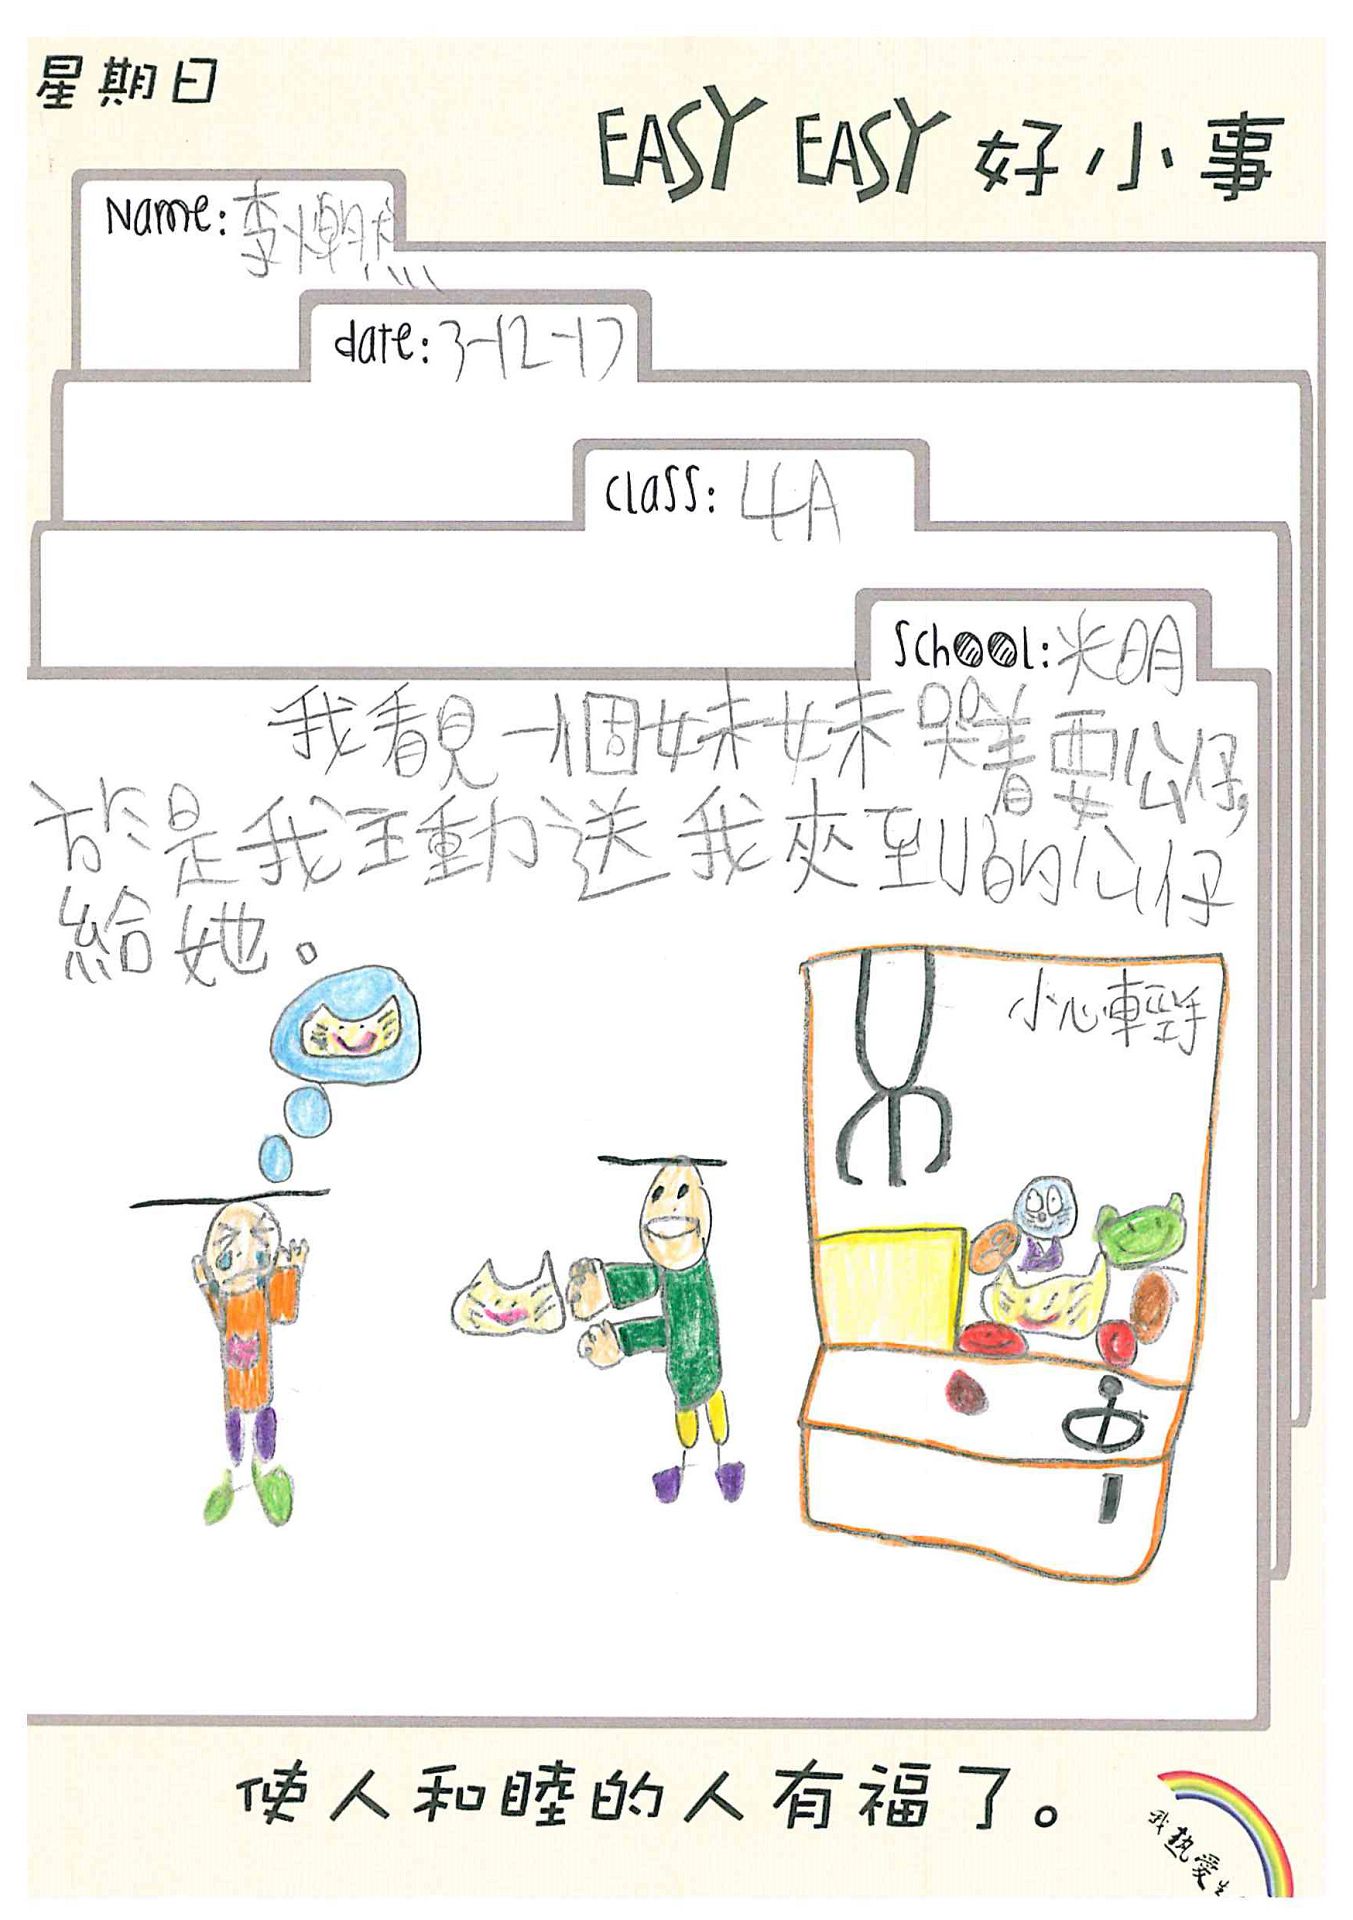 星期日
EASY EASY 好小事
Name: 李焯然
date: 3-12-17
class: 4A
School: 光明
我看見一個妹妹哭着要公仔,
於是我主動送我夾到的公仔
給她。
小心輕手
使人和睦的人有福了。
我熱愛生